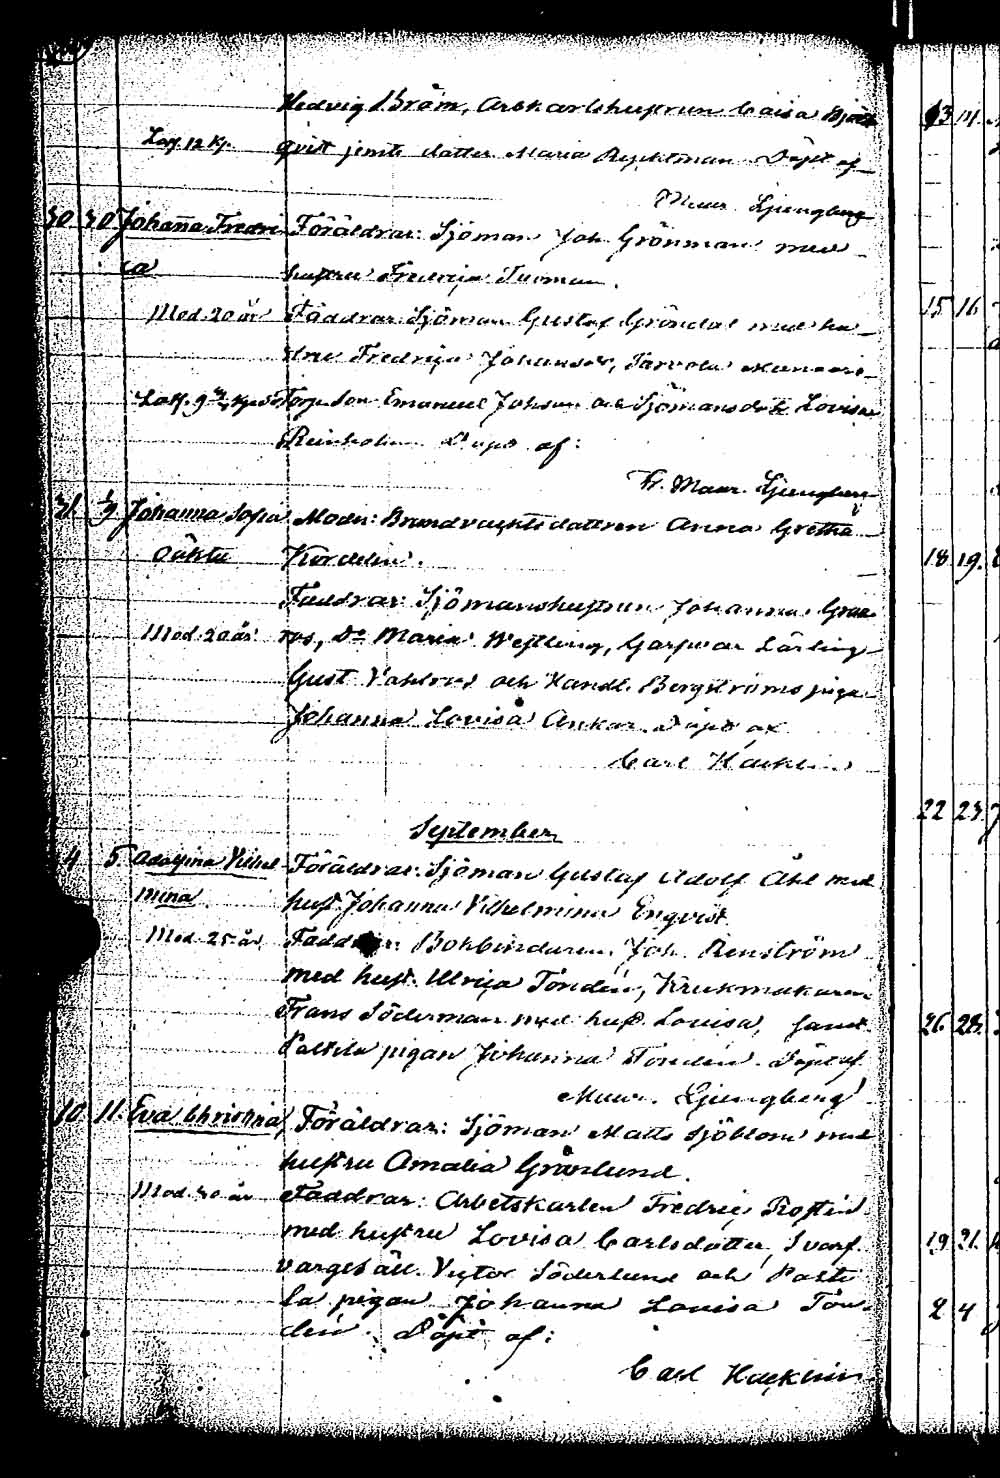 Hedvig Bröm, Arbkarlshustrun Caisa Björk
qvist jemte dotter Maria Ryektman Döpt af
Laff. 12 Kp.
Maur. Ljungberg
30. 30 Johanna Fredri Föräldrar: Sjöman Joh. Grönman med
ca hustru Fredrica Tuoman.
Mod. 20 år Faddrar: Sjöman Gustaf Gröndal med hu
stru Fredrica Johansdr, Torp.
Torp. Son Emanuel Johsson och Sjömansdotr Lovisa
Reinholm Döpt af:
Fr. Maur. Ljungberg
31. Johanna Sofia Moder: Brandvaktsdottren Anna Gretha
Oäkta Nordelin.
Faddrar: Sjömanshustrun Johanna Gran
Mod. 20 år. ros, Do Maria Westling, Garfvar Lärling
Gust. och Handl. Bergströms piga
Johanna Lovisa Ankar. Döpt af
Carl Hacklin
September
4 5. Adolfina Vilhel Föräldrar: Sjöman Gustaf Adolf Åhl med
mina hust. Johanna Vilhelmina Engvist
Mod. 25 år, Faddrar: Bokbindaren Joh. Renström
med hust. Ulrica Tondén, Krukmakaren
Frans Söderman med hust. Lovisa, samt
Pattila pigan Johanna Tondén. Döpt af
Maur. Ljungberg
10. 11. Eva Christina, Föräldrar: Sjöman Matts Sjöblom med
hustru Amalia Grönlund.
Mod. 30 år Faddrar: Arbetskarlen Fredric Rostén
med hustru Lovisa Carlsdotter, Svarf
vargesäll. Victor Söderlund och Patti
la pigan Johanna Lovisa Ton
dén. Döpt af:
Carl Hacklin
13 14
15 16
18 19.
22 23.
26 28.
19 21.
2 4